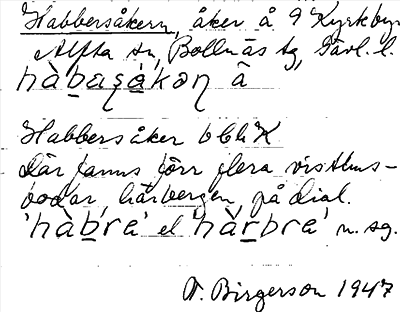 Habbersåkern, åker å 9 Kyrkbyn
Alfta sn, Bollnäs tg, Gävl. l.
hàbasåkəṇ å
Habbersåker
Där fanns förr flera visthus-
bodar, härbergen, på dial.
'hàbrè' el 'hàrbrè' n. sg.
Birgerson 1947